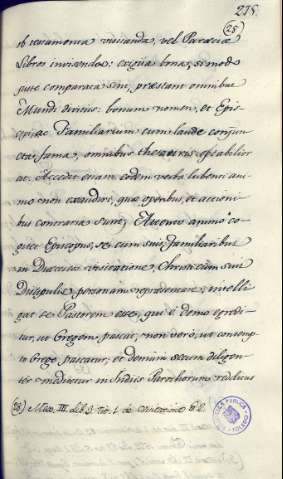 275.
(25)
ob sacramenta visitanda, vel Paraecia
Libros inviendos: exigua bona, si modo
juste comparata sint, praestant omnibus
Mundi divitiis: bonum nomen, et Epis
copi ac Familiarium cum laude conjunc
ta, fama, omnibus thesauris optabilior
est. Accedet enam eadem verba lubenti ani
mo, non
quae operibus, et actioni
bus contraria sunt; Attento animo co
gitet Episcopus, se cum suis familiaribus
in Dioecesis visitatione, Christi cum suis
Discipulis, personam repraesentare; intelli
gat se Pastorem esse, qui è domo egredi
tur, ut Gregem pascat, non verò, ut contemp
to Grege, pascatur; et demum secum diligen
ter meditetur in Indiis Parochorum reditus
(25) Mex. III. Lib. 3. Tit. 1. de
BIBLIOTECA PUBLICA
TOLEDO